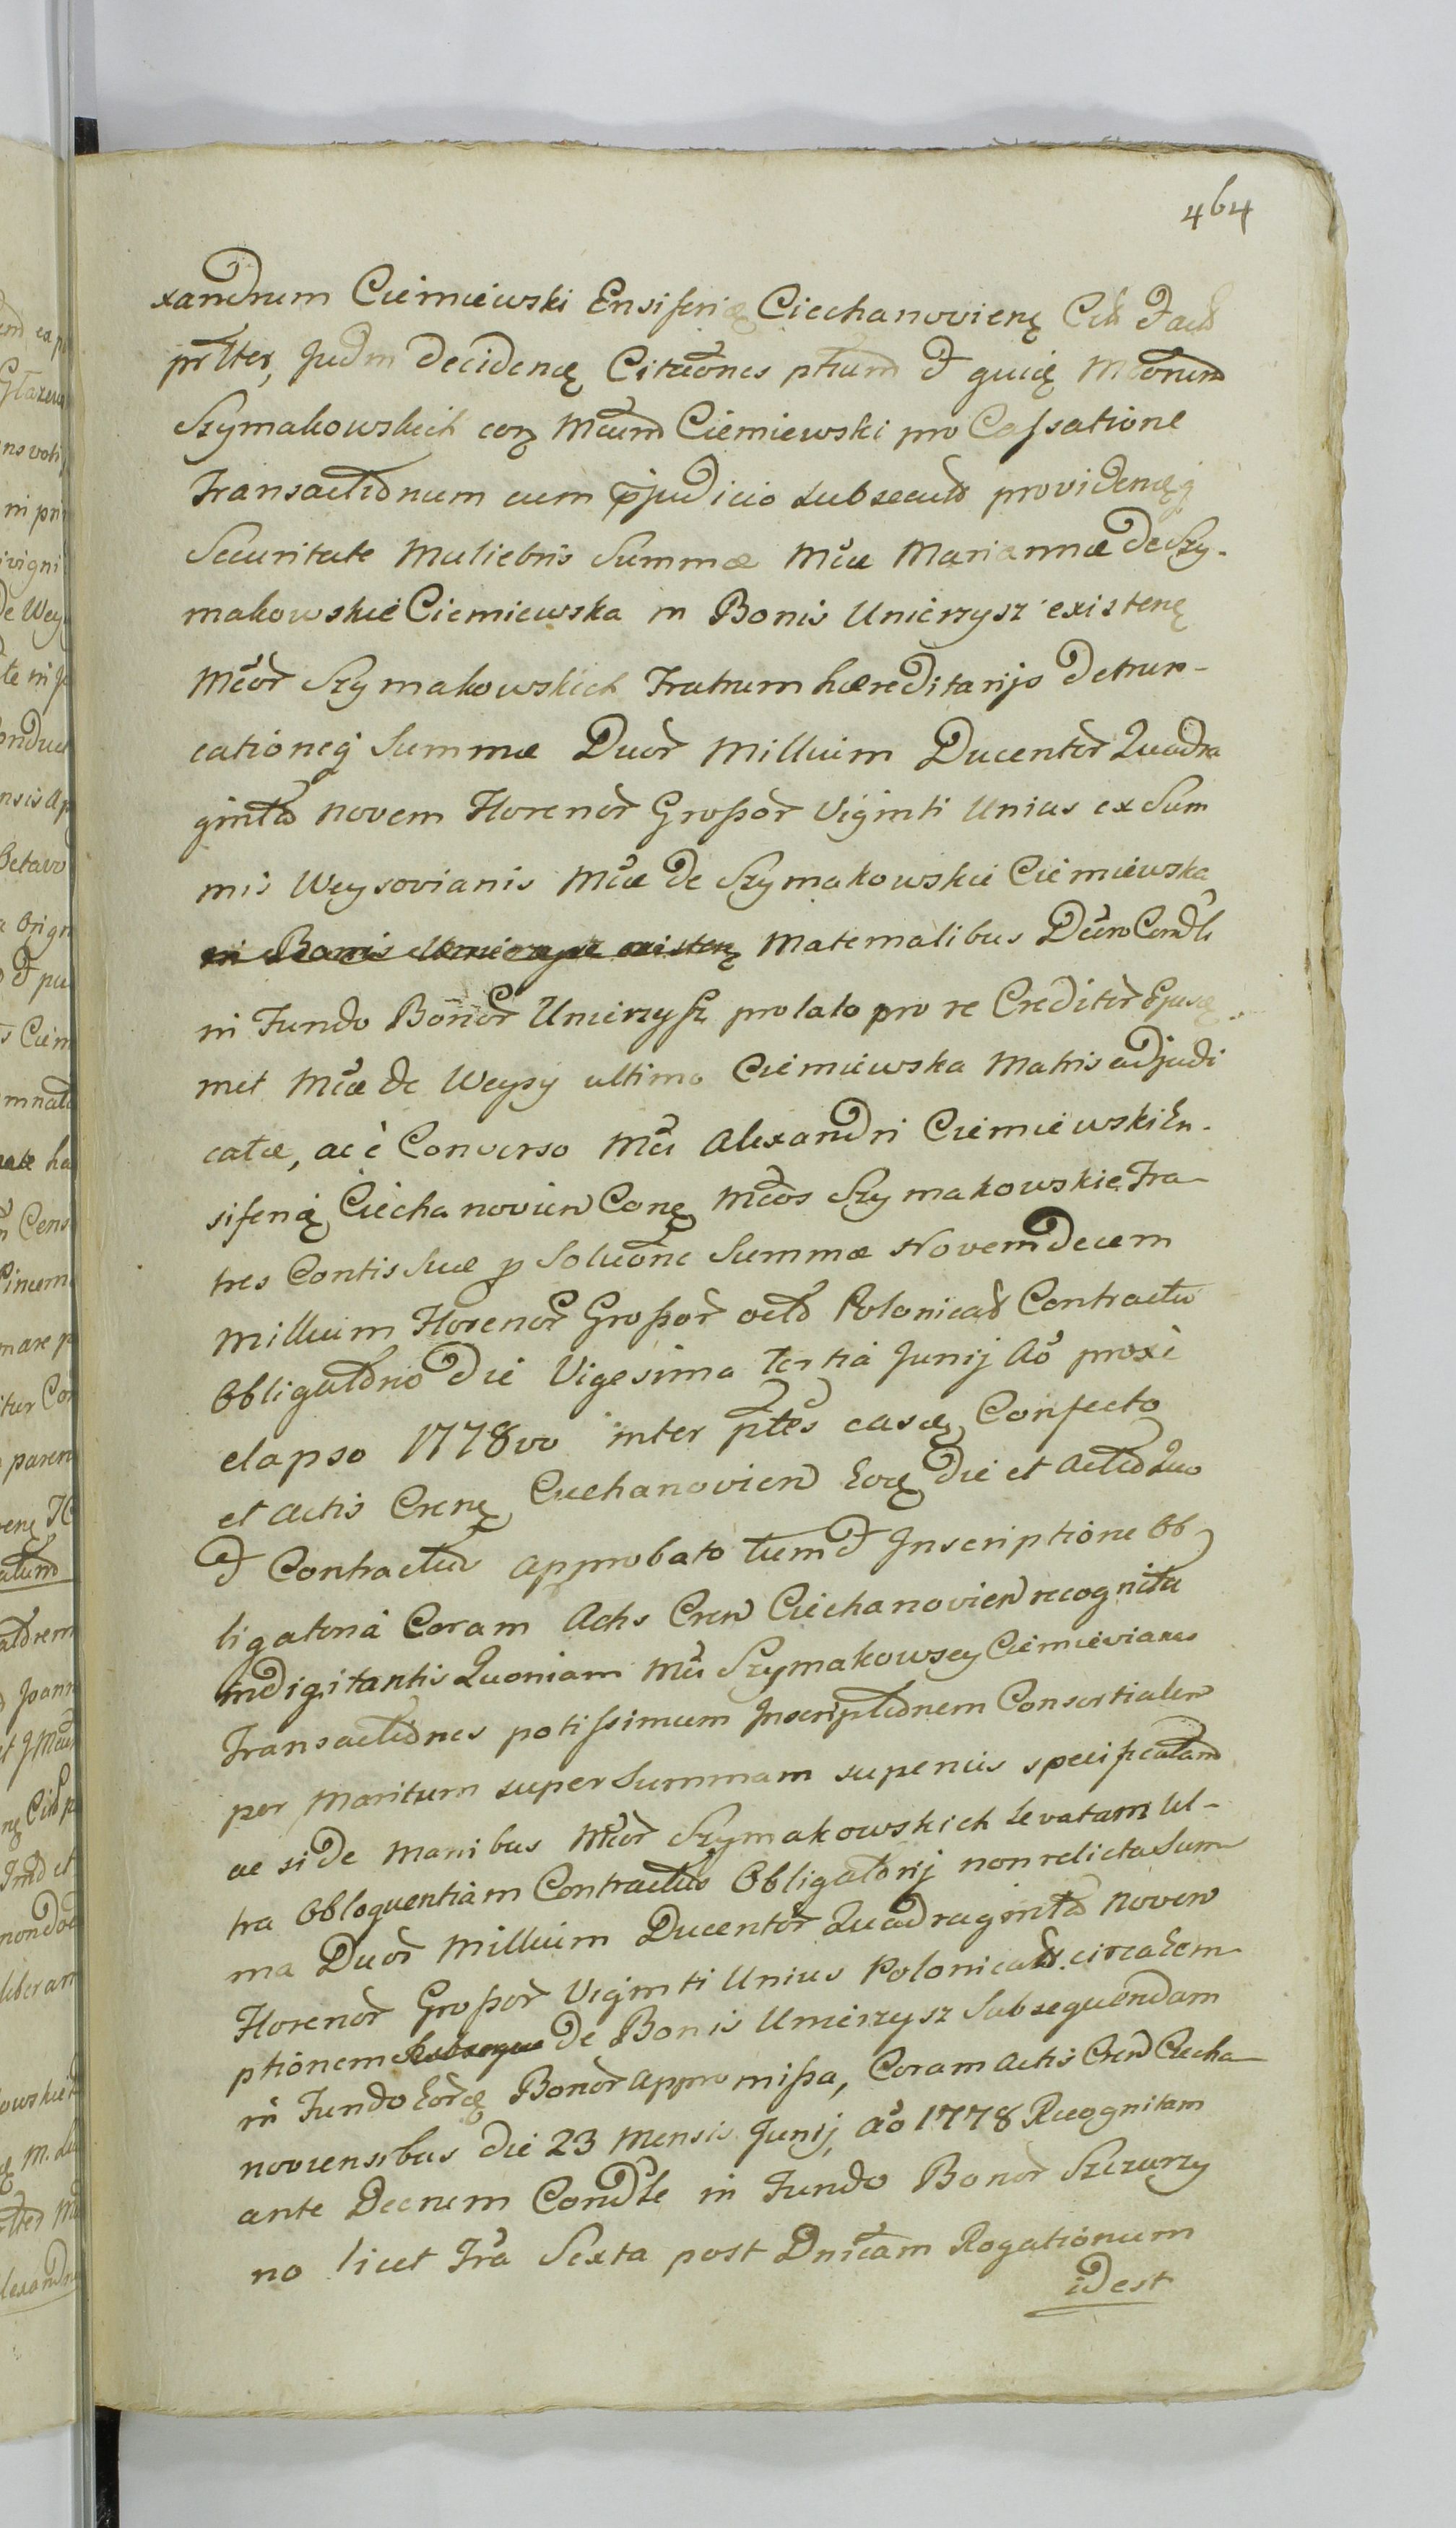 464
xandrum Ciemiewski Ensiferię Ciechanovienę Cit Fact
prlter, Judm Decidenę Citaones ptium & quicę Mcorum
Szymakowskich corę Mcum Ciemiewski pro Cassatione
Transactionum cum pjudicio subsecut providenęq
Securitate Muliebris Summæ Mcæ Mariannæ de Szy-
makowskie Ciemiewska in Bonis Unierzysz existenę
Mcor Szymakowskich Fratrum hæreditarijs Detrun-
cationeq Summæ Duor Millium Ducentor Quadra
ginta novem Florenor Grossor Viginti Unius ex Sum
mis Weysovianis Mcæ de Szymakowskie Ciemiewska
in Bonis Unierzysz existenę Maternalibus Dcro Condli
in Fundo Bonor Unierzysz prolato pro re Creditor Ejusę
met Mcæ de Weysy ultimo Ciemiewska Matris adjudi
catæ, ac è Converso Mci Alexandri Ciemiewski En-
siferię Ciechanovien Conę Mcos Szymakowskie Fra-
tres Contis suæ p Soluone Summæ Novemdecem
Millium Florenor Grossor octo Polonical Contractu
Obligatorio Die Vigesima tertia Junij Ao proxè
elapso 1778vo inter ptes easdę Confecto
et Actis Crenę Ciechanovien Eodę die et Acto Quo
& Contractu approbato tum & Inscriptione Ob
ligatoria Coram Actis Cren Ciechanovien recognita
indigitantis Quoniam Mci Szymakowscy Ciemievianes
Transactiones potissimum Inscriptionem Consortialem
per Maritum super Summam superius specificatam
ac si de Manibus Mcor Szymakowskich levatam Ul-
tra Obloquentiam Contractus Obligatorij non relicta Sum
ma Duor Millium Ducentor Quadraginta Novem
Florenor Grossor Viginti Unius Polonical circa Eem
ptionem Subsequen de Bonis Unierzysz Subsequendam
in Fundo Eordę Bonor appromissa, Coram Actis Cren Ciecha
noviensibus die 23 Mensis Junij Ao 1778 Recognitam
ante Decrum Condle in Fundo Bonor Szczurzy
no licet Fra Sexta post Dnicam Rogationum
idest